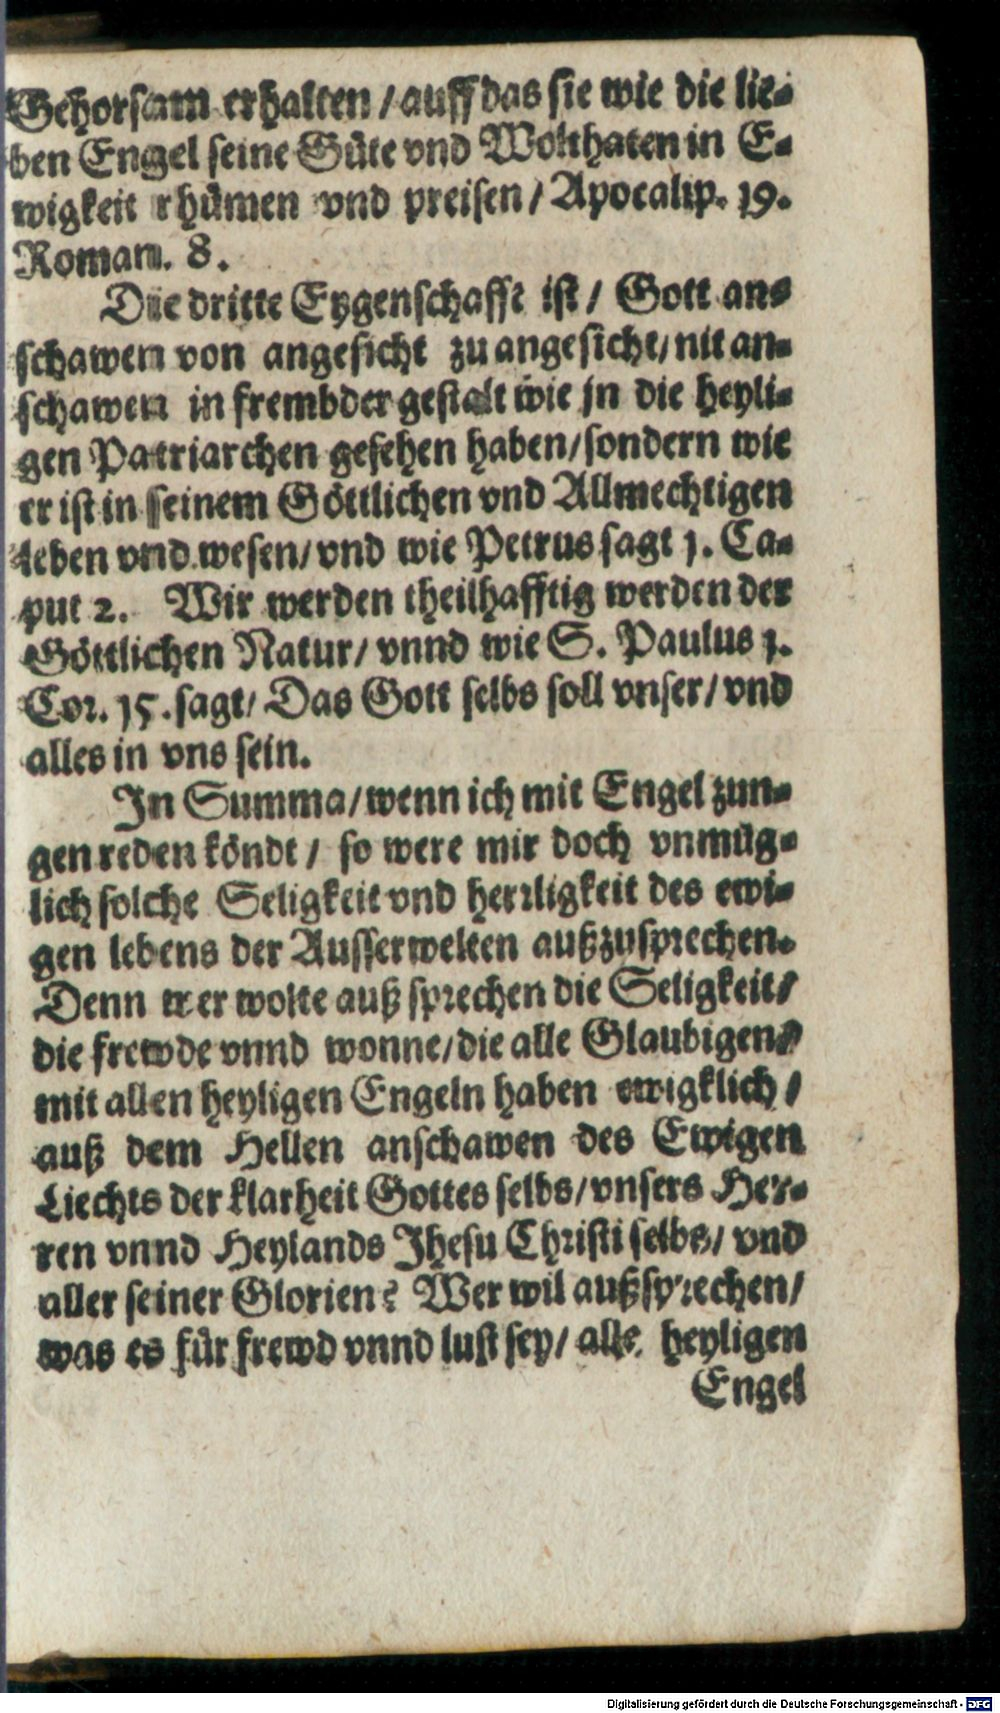 Gehorsam erhalten / auff das sie wie die lie-
ben Engel seine Güte vnd Wolthaten in E-
wigkeit rhümen vnd preisen / Apocalip. 19.
Roman. 8.
Die dritte Eygenschafft ist / Gott an-
schawen von angesicht zu angesicht / nit an-
schawen in frembder gestalt wie jn die heyli-
gen Patriarchen gesehen haben / sondern wie
er ist in seinem Göttlichen vnd Allmechtigen
leben vnd wesen / vnd wie Petrus sagt 1. Ca-
put 2. Wir werden theilhafftig werden der
Göttlichen Natur / vnnd wie S. Paulus 1.
Cor. 15. sagt / Das Gott selbs soll vnser / vnd
alles in vns sein.
In Summa / wenn ich mit Engel zun-
gen reden köndt / so were mir doch vnmüg-
lich solche Seligkeit vnd herrligkeit des ewi-
gen lebens der Ausserwelten außzusprechen.
Denn wer wolte außsprechen die Seligkeit /
die frewde vnnd wonne / die alle Glaubigen /
mit allen heyligen Engeln haben ewigklich /
auß dem Hellen anschawen des Ewigen
Liechts der klarheit Gottes selbs / vnsers Her-
ren vnnd Heylands Jhesu Christi selbs / vnd
aller seiner Glorien? Wer wil außsprechen /
was es für frewd vnnd lust sey / alle heyligen
Engel
Digitalisierung gefördert durch die Deutsche Forschungsgemeinschaft - DFG